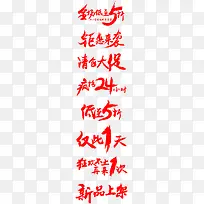 全场低至5折
钜惠来袭
清仓大促
疯抢24小时
低至5折
仅此1天
狂欢不止再来1次
新品上架